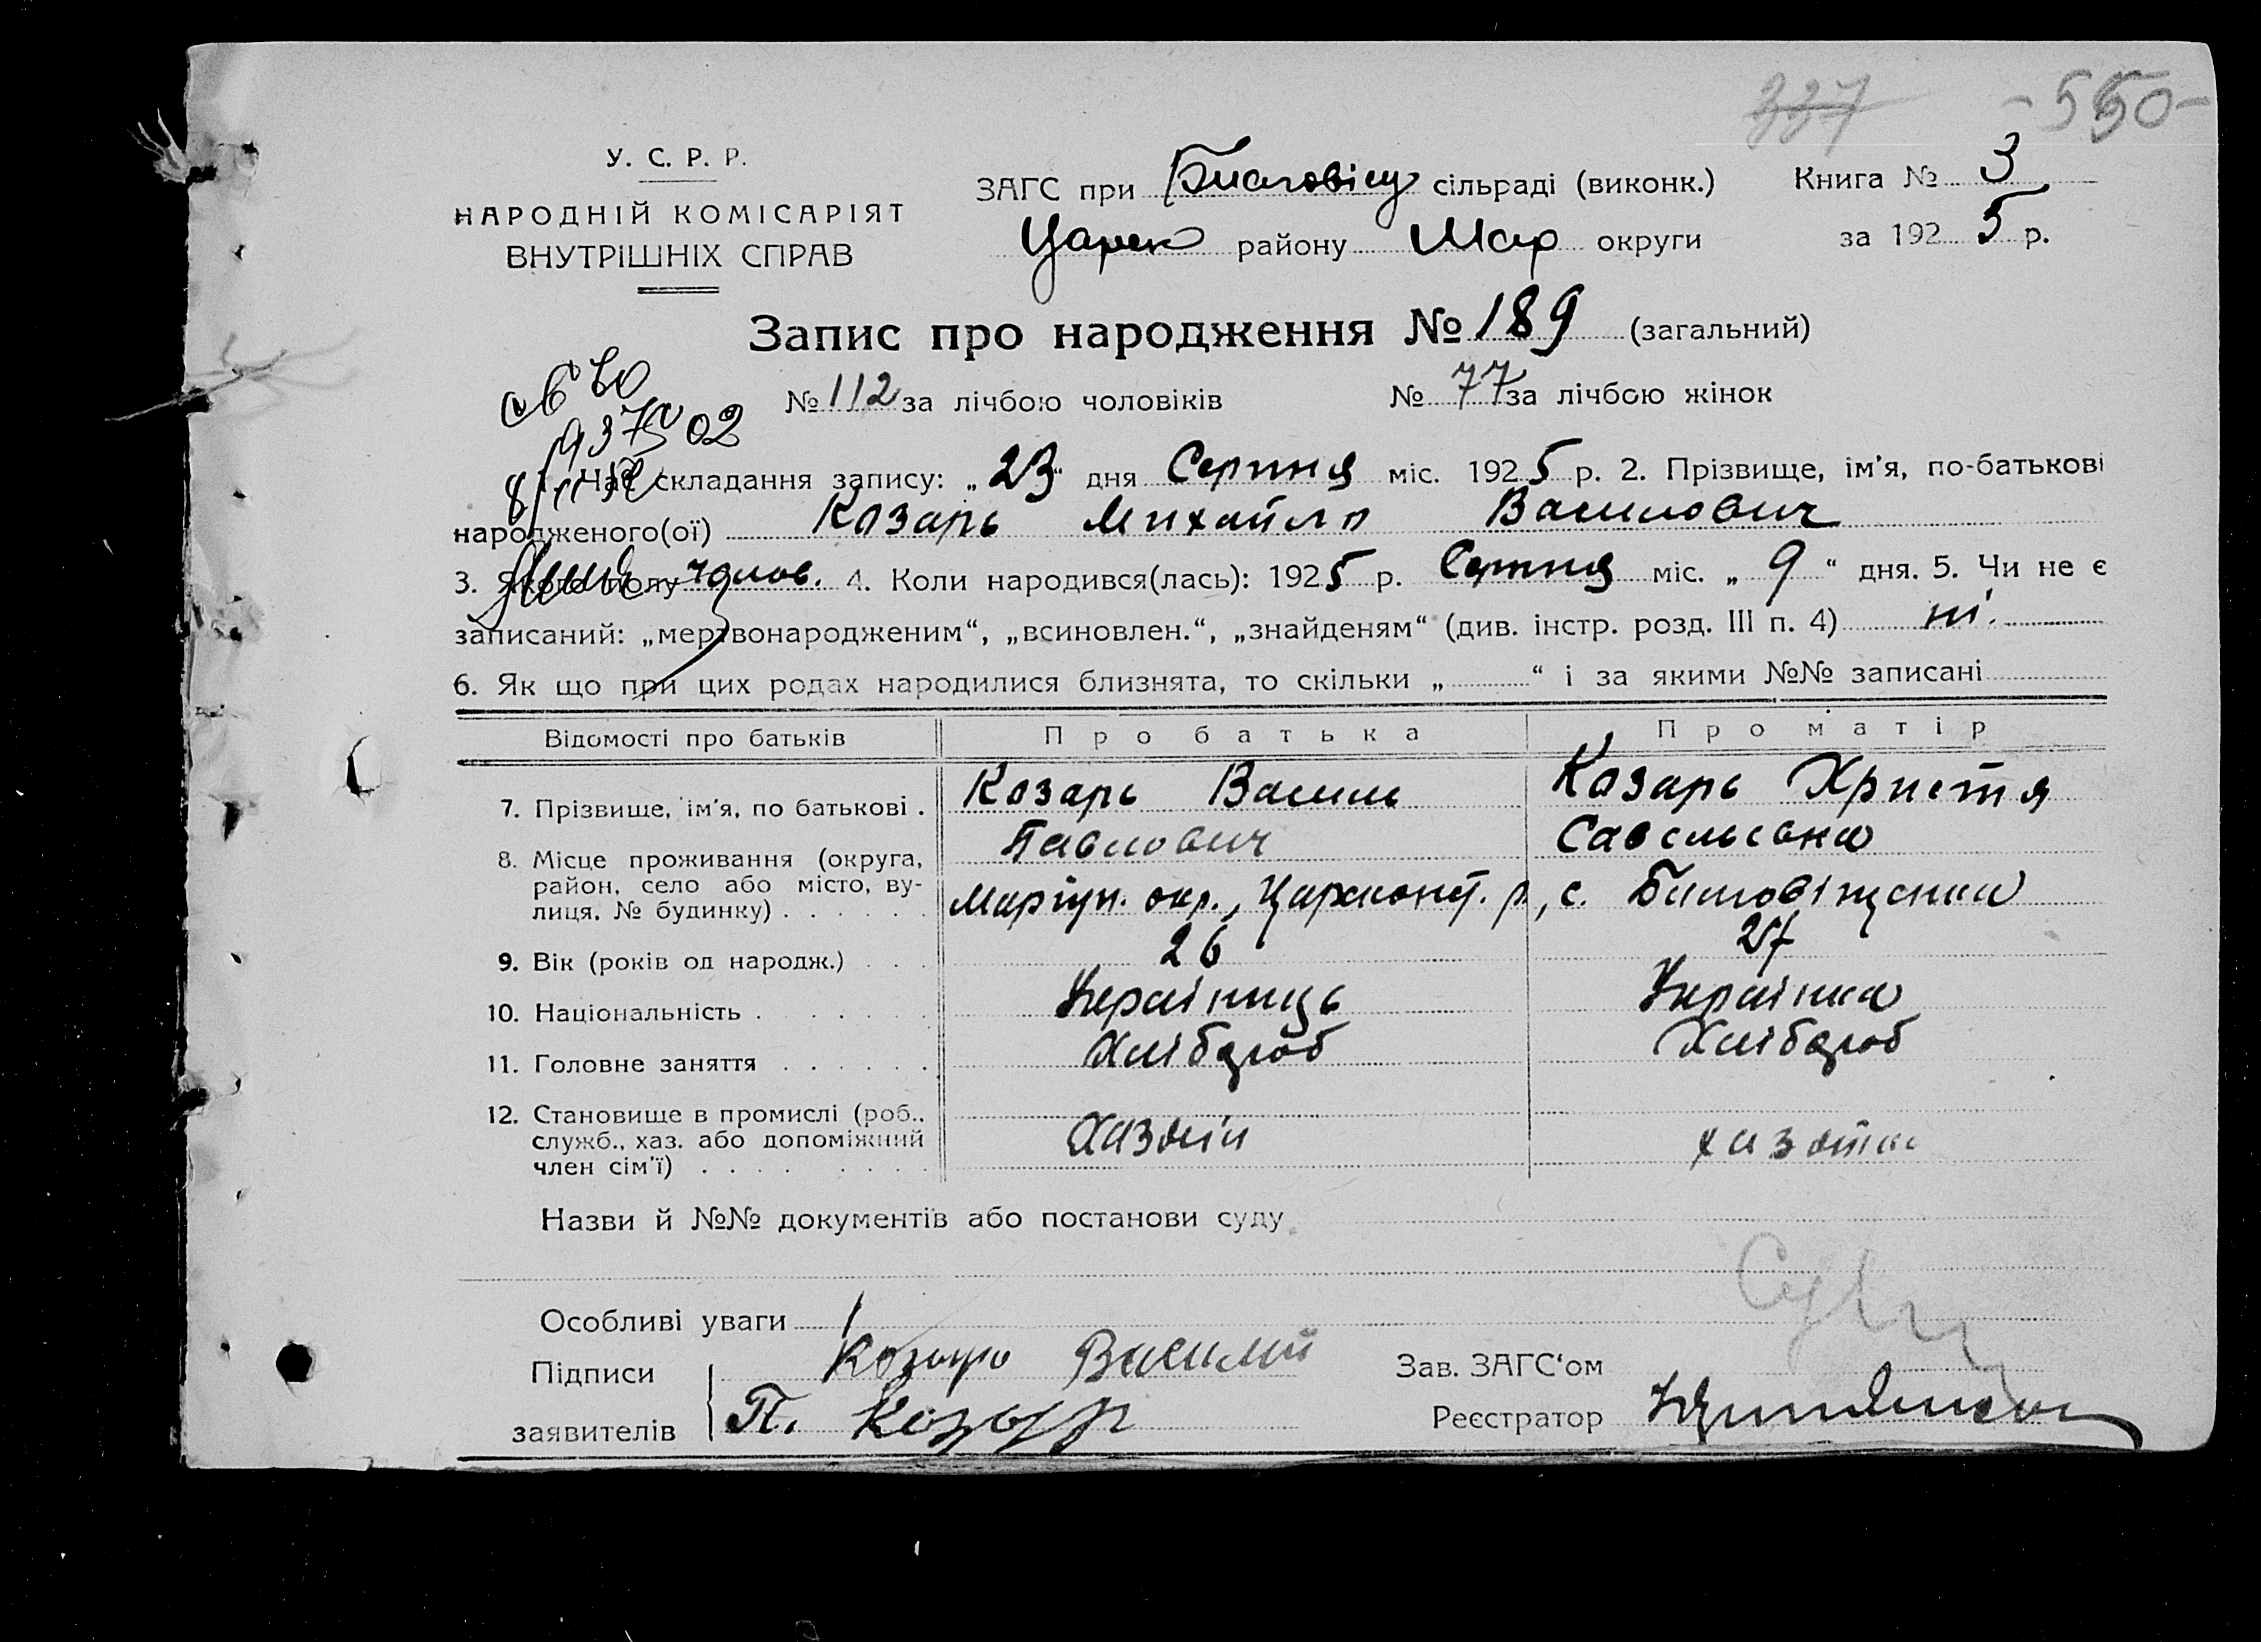 337 -550-
У. С. Р. Р.
НАРОДНІЙ КОМІСАРІЯТ
ВНУТРІШНІХ СПРАВ
ЗАГС при Благовіщ сільраді (виконк.) Книга № 3
Царек району Мар округи за 1925 р.
Запис про народження № 189 (загальний)
№ 112 за лічбою чоловіків № 77 за лічбою жінок
1. Час складання запису: „23“ дня Серпня міс. 1925 р. 2. Прізвище, ім'я, по-батькові
народженого(ої) Козарь Михайло Василович
3. Якого полу чолов. 4. Коли народився(лась): 1925 р. Серпня міс. „9“ дня. 5. Чи не є
записаний: „мертвонародженим“, „всиновлен.“, „знайденям“ (див. інстр. розд. III п. 4) ні.
6. Як що при цих родах народилися близнята, то скільки „ “ і за якими №№ записані
Відомості про батьків Про батька Про матір
7. Прізвище, ім'я, по батькові . Козарь Василь Павлович Козарь Христя Савельевна
8. Місце проживання (округа,
район, село або місто, ву-
лиця, № будинку) . . . . . . Маріуп. окр., Царконст. р., с. Благовіщенка
9. Вік (років од народж.) . . . 26 27
10. Національність . . . . . . . Українець Українка
11. Головне заняття . . . . . . Хлібороб Хлібороб
12. Становище в промислі (роб.,
служб., хаз. або допоміжний
член сім'ї) . . . . . . . . Хазяїн хазяйка
Назви й №№ документів або постанови суду
Особливі уваги
Підписи Козыр Василий Зав. ЗАГС'ом
заявителів П. Козыр Реєстратор